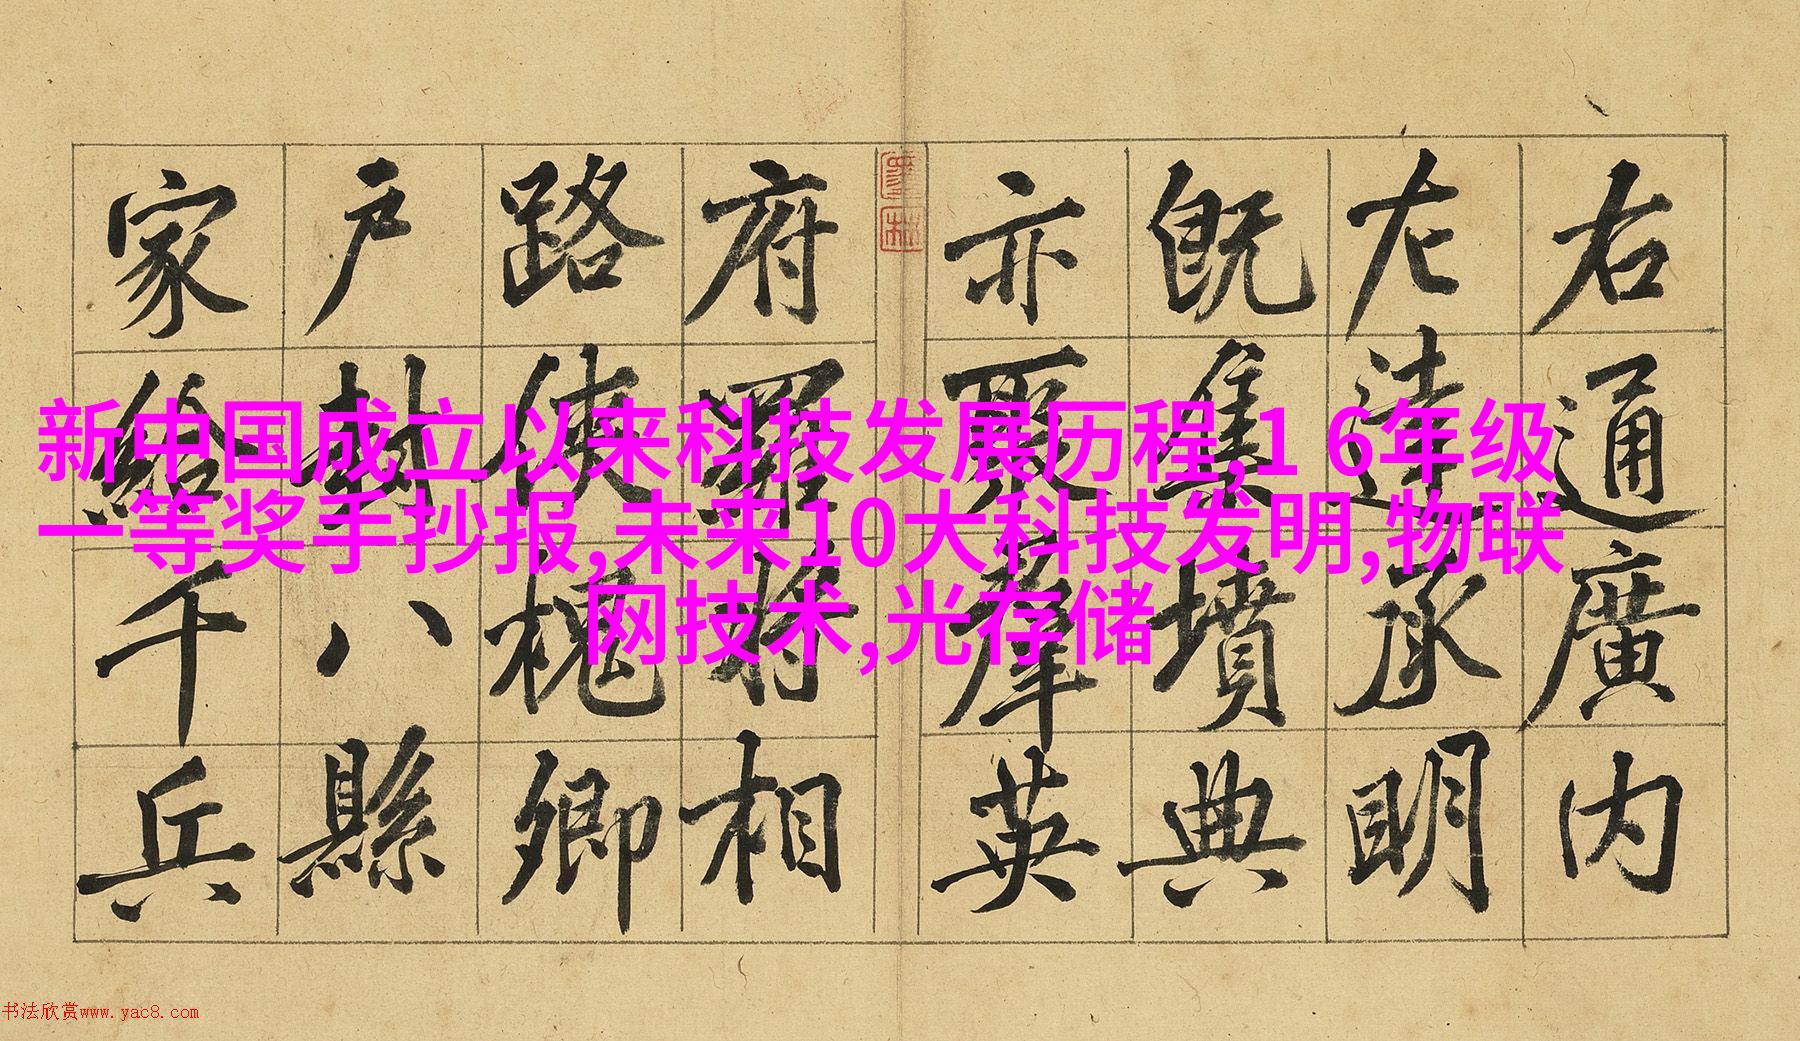 右通廣内
左達承明
既集墳典
亦聚羣英
府羅将相
路俠槐卿
户封八縣
家給千兵
新中国成立以来科技发展历程,1 6年级
一等奖手抄报,未来10大科技发明,物联
网技术,光存储
书法欣赏www.yac8.com